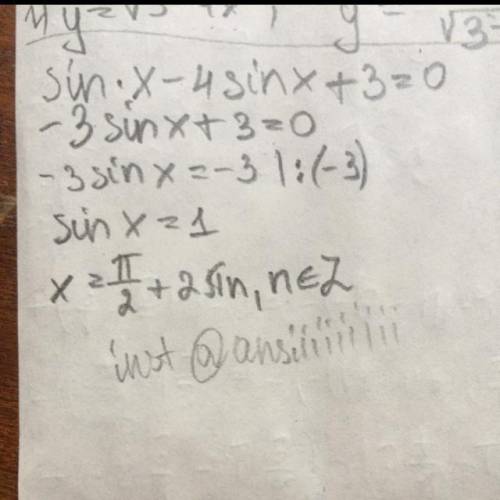 sin·x-4sinx+3=0
-3sinx+3=0
-3sinx=-3 |:(-3)
sinx=1
x=π/2+2πn, n∈Z
inst @ansiiiiiiiii